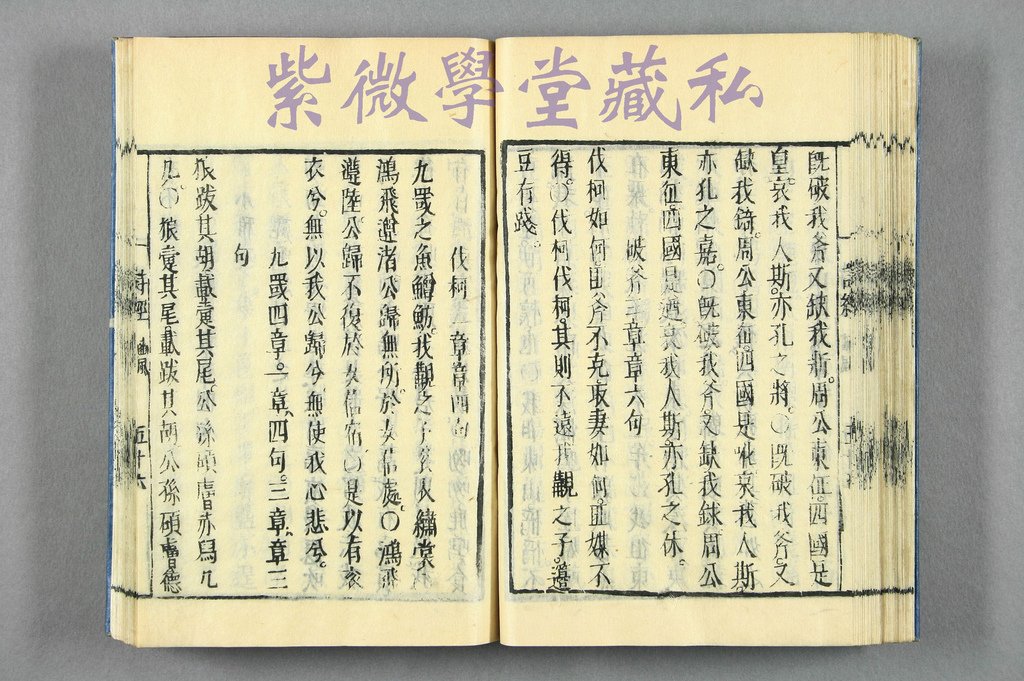 紫微學堂藏私
既破我斧又缺我斨。周公東征。四國是
皇。哀我人斯。亦孔之將。〇既破我斧。又
缺我錡。周公東征。四國是吪哀我人斯。
亦孔之嘉。〇既破我斧又缺我銶周公
東征。四國是遒哀我人斯亦孔之休。
破斧三章章六句
伐柯如何匪斧不克取妻如何匪媒不
得。〇伐柯伐柯。其則不遠我覯之子。籩
豆有踐。
伐柯二章章四句
九罭之魚鱒魴。我覯之子袞衣繡裳
鴻飛遵渚公歸無所。於女信處。〇鴻飛
遵陸。公歸不復於女信宿。〇是以有袞
衣兮。無以我公歸兮。無使我心悲兮。
九罭四章。一章四句。三章章三
句
狼跋其胡載疐其尾。公孫碩膚赤舄几
几。〇狼疐其尾。載跋其胡公孫碩膚德
詩經 豳風 五十六